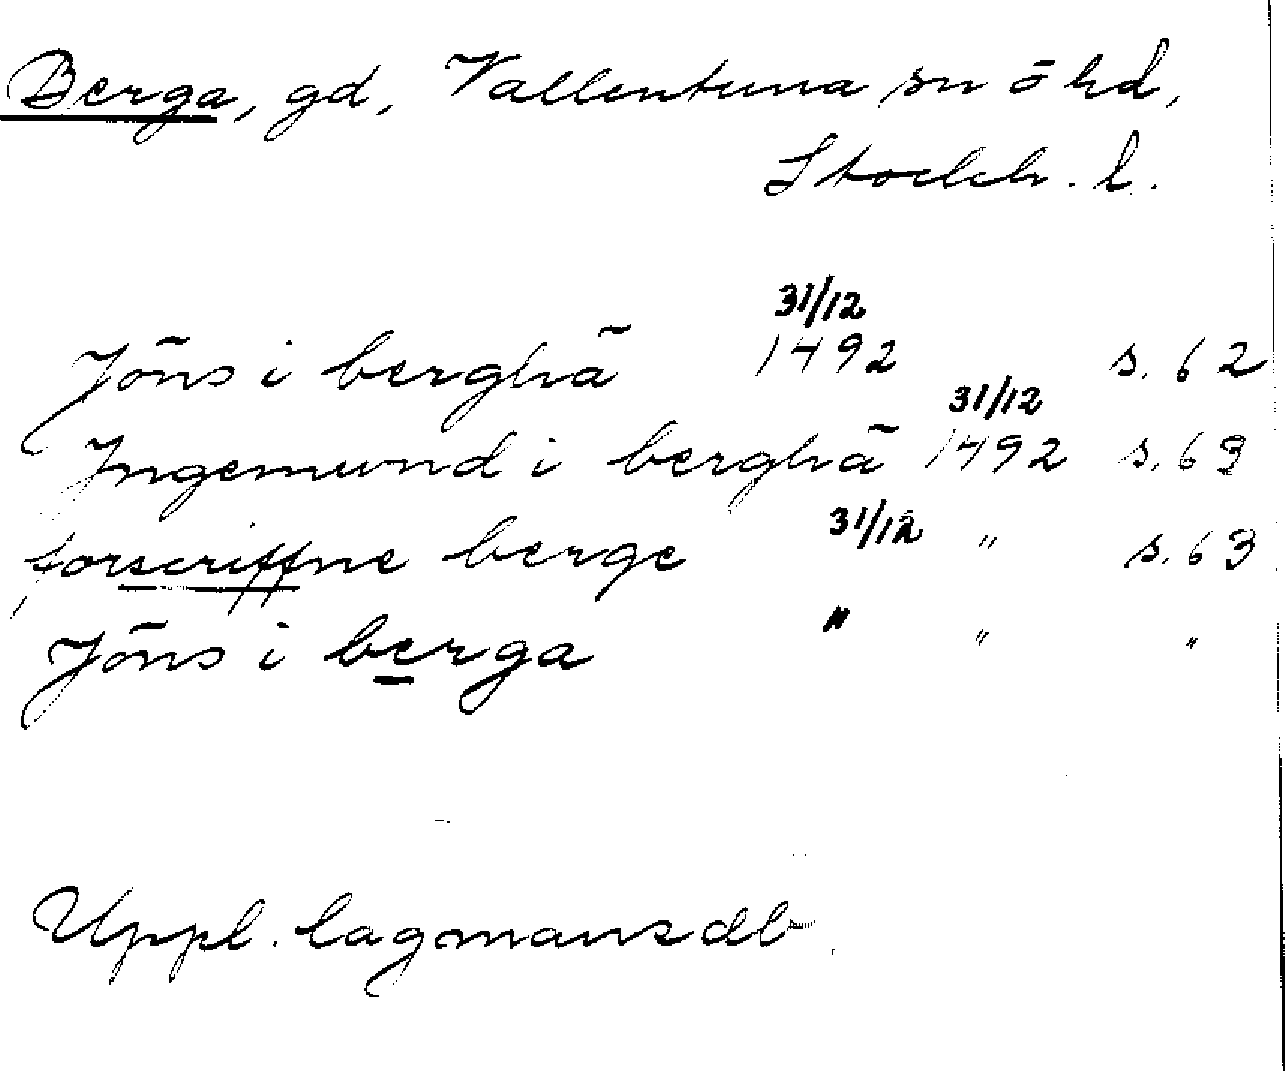 Berga, gd, Vallentuna sn o hd,
Stockh. l.
Jöns i berghā 31/12 1492 s. 62
Ingemund i berghā 31/12 1492 s. 63
forscriffne berge 31/12 " s. 63
Jöns i berga " " "
Uppl. lagmansdb